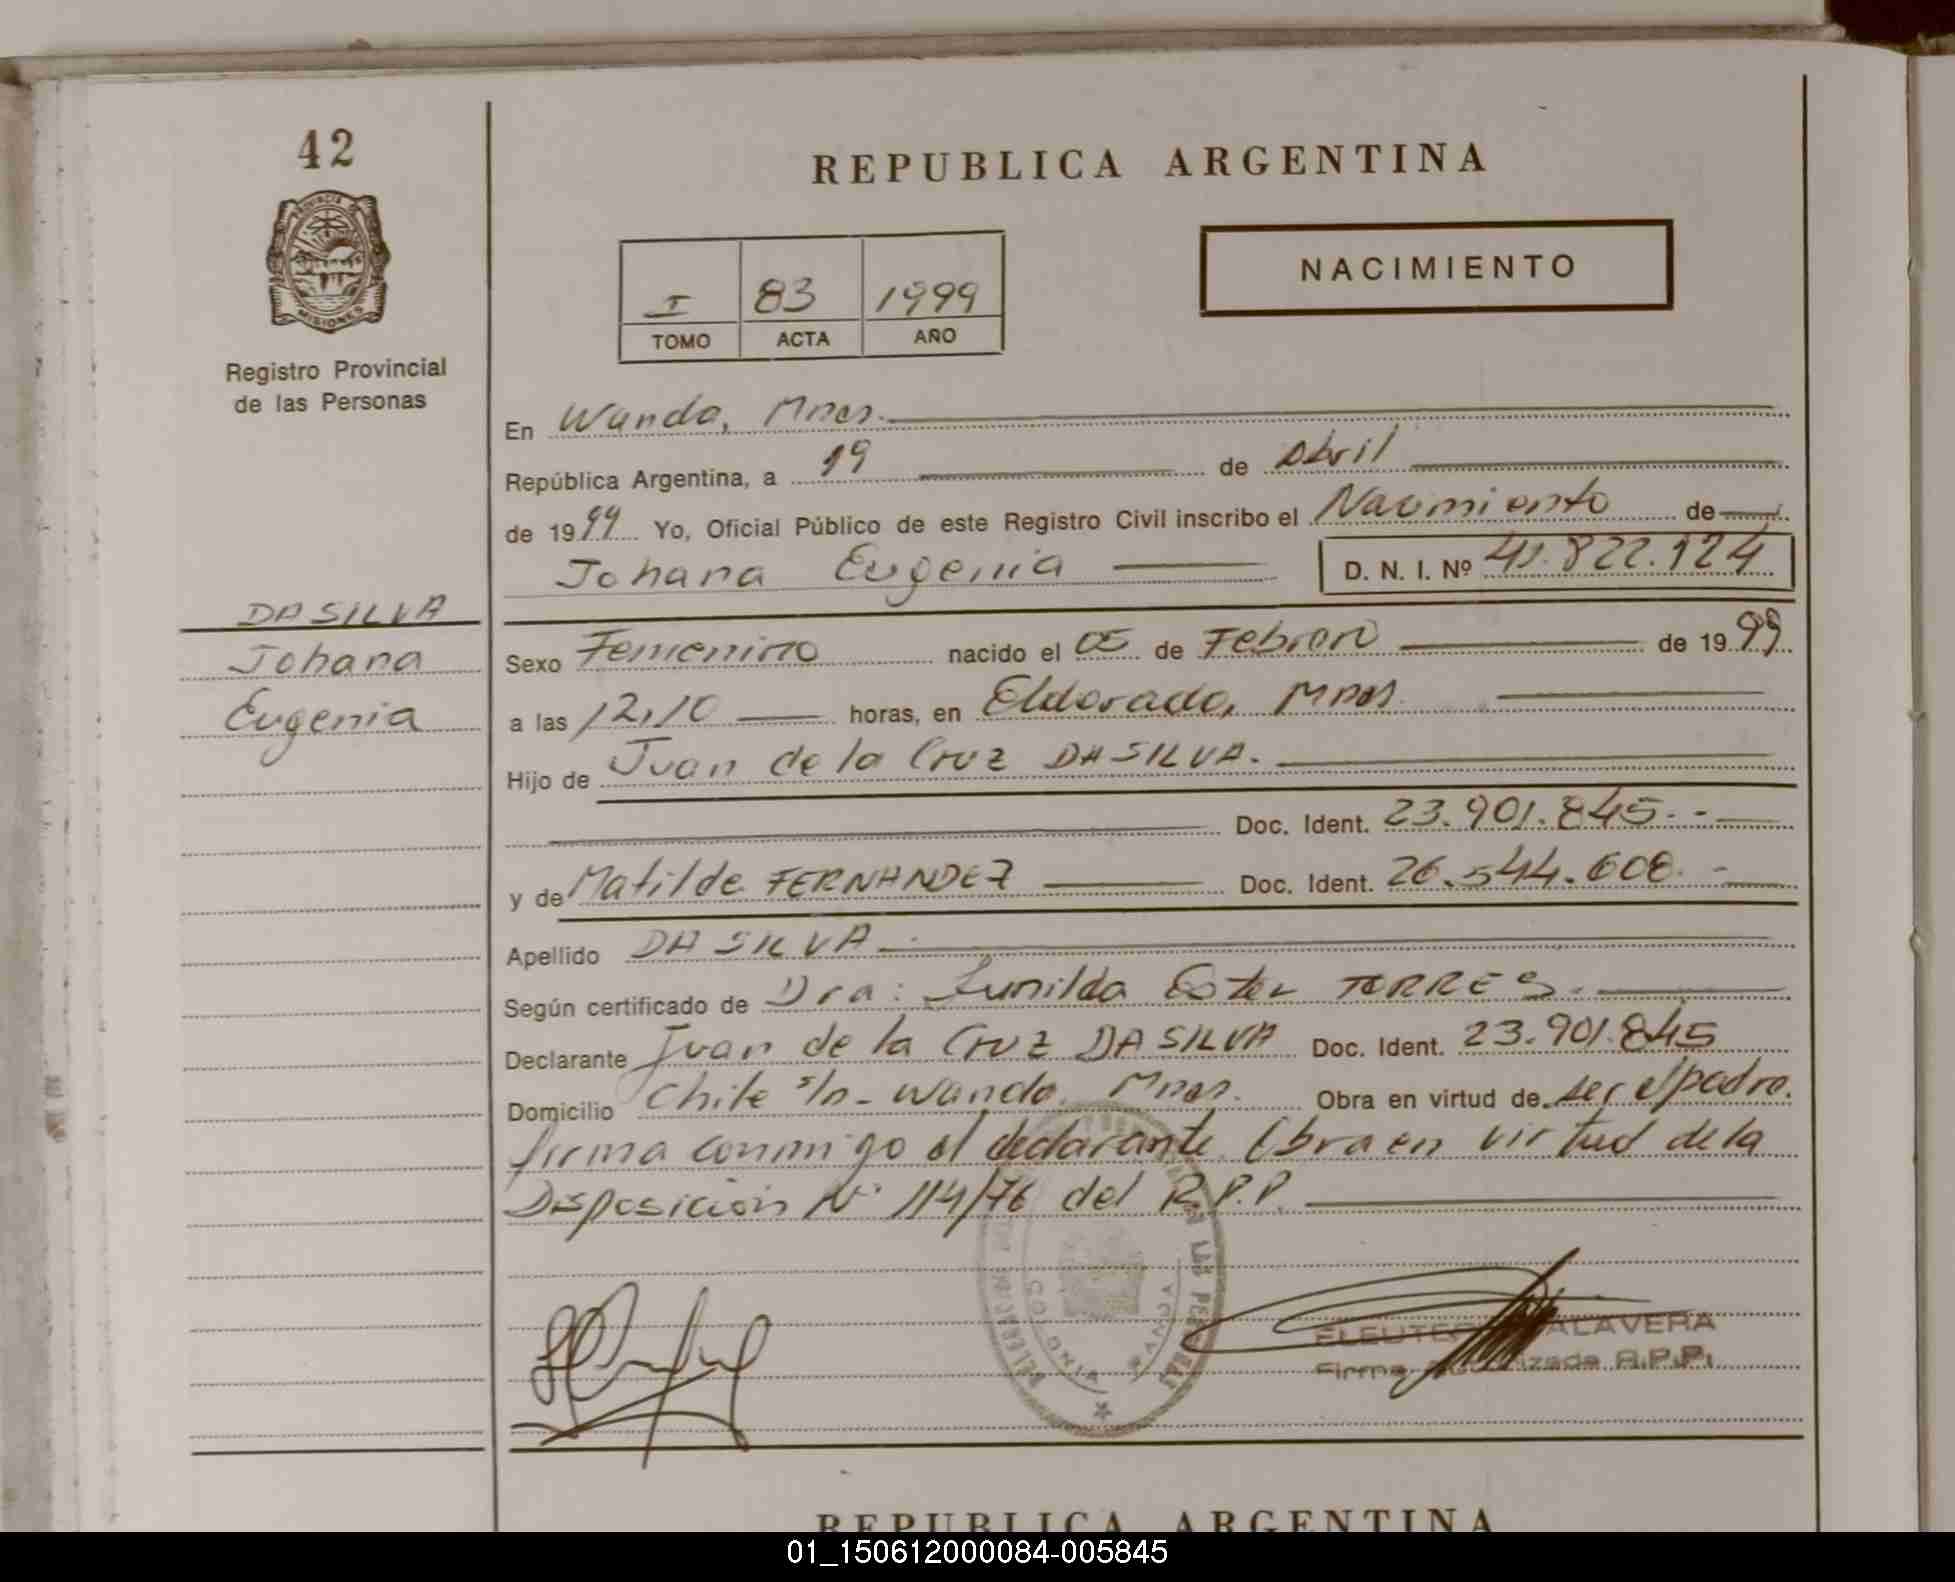 42
REPUBLICA ARGENTINA
PROVINCIA DE
MISIONES
Registro Provincial
de las Personas
I 83 1999
TOMO ACTA AÑO
NACIMIENTO
En Wanda, Mnes.
República Argentina, a 19 de abril
de 1999 Yo, Oficial Público de este Registro Civil inscribo el Nacimiento de
Johana Eugenia D. N. I. Nº 41.822.124
DA SILVA
Johana
Eugenia
Sexo Femenino nacido el 05 de Febrero de 1999
a las 12,10 horas, en Eldorado, Mnes.
Hijo de Juan de la Cruz DA SILVA.
Doc. Ident. 23.901.845.-
y de Matilde FERNANDEZ Doc. Ident. 26.544.608.-
Apellido DA SILVA
Según certificado de Dra: Lunilda Ester TORRES.
Declarante Juan de la Cruz DA SILVA Doc. Ident. 23.901.845
Domicilio Chile s/n - Wanda. Mnes. Obra en virtud de ser el padre.
firma conmigo el declarante. Obra en virtud de la
Disposición Nº 114/76 del R.P.P.
WANDA
MISIONES
ALAVERA
Firma R.P.P.
REPUBLICA ARGENTINA
01_150612000084-005845